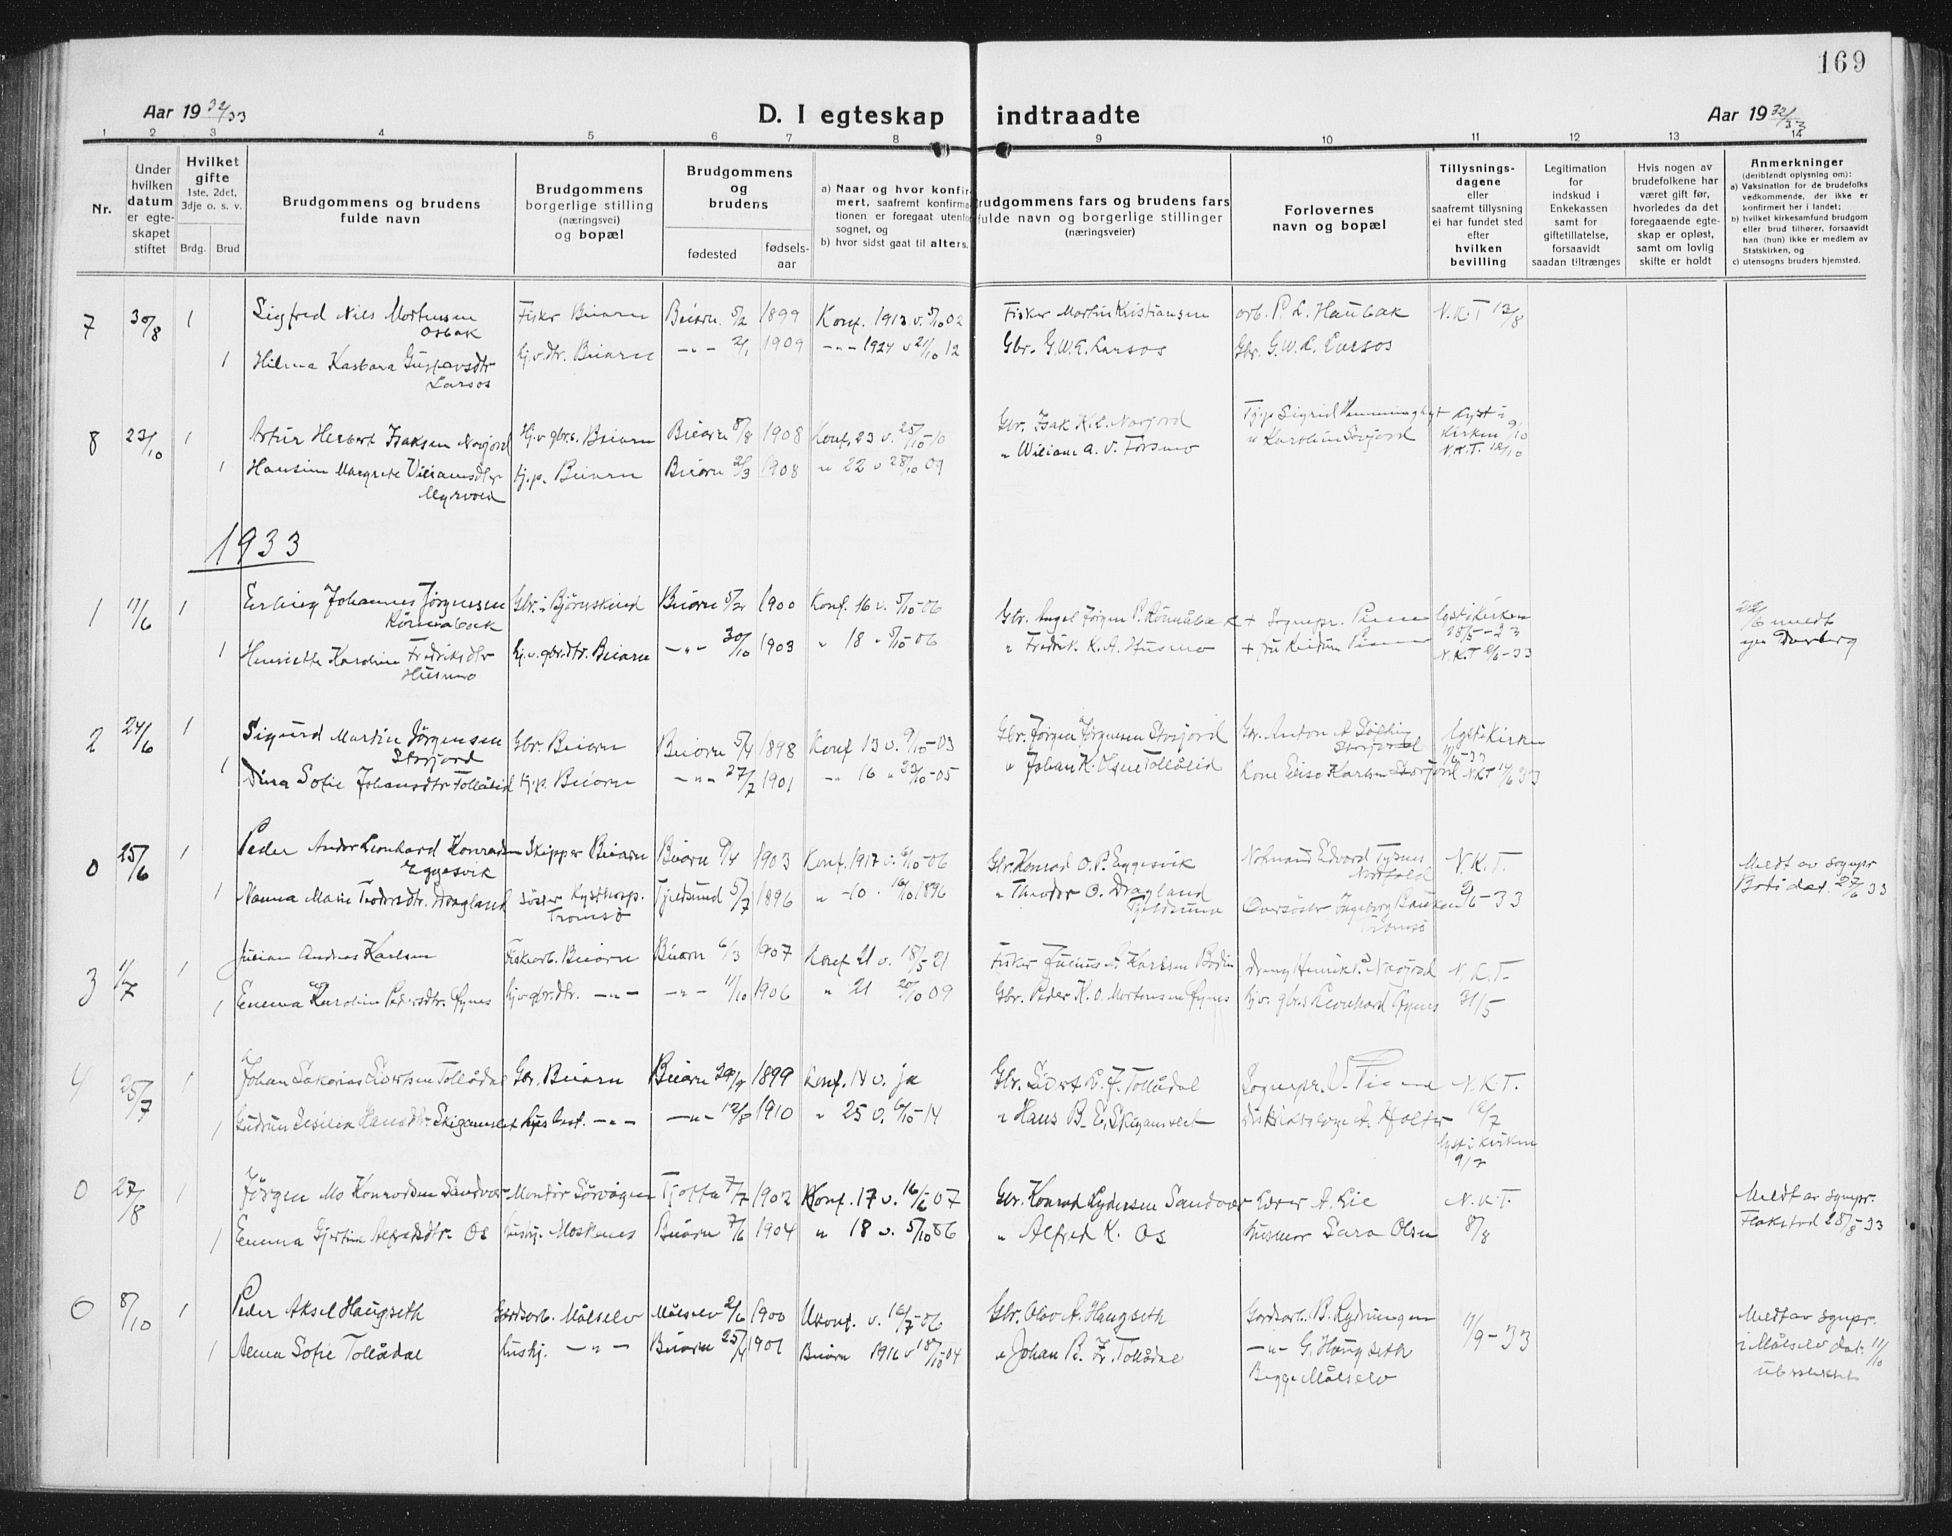 169
Aar 19 32/33
D. I egteskap indtraadte
Aar 19 32/33
1 2 3 4 5 6 7 8 9 10 11 12 13 14
Nr.
Under hvilken datum er egteskapet stiftet
Hvilket gifte 1ste, 2det, 3dje o. s. v.
Brdg. Brud
Brudgommens og brudens fulde navn
Brudgommens borgerlige stilling (næringsvei) og bopæl
Brudgommens og brudens
fødested fødsels-aar
a) Naar og hvor konfirmert, saafremt konfirmationen er foregaat utenfor sognet, og
b) hvor sidst gaat til alters.
Brudgommens fars og brudens fars fulde navn og borgerlige stillinger (næringsveier)
Forlovernes navn og bopæl
Tillysnings-dagene eller saafremt tillysning ei har fundet sted efter hvilken bevilling
Legitimation for indskud i Enkekassen samt for giftetillatelse, forsaavidt saadan tiltrænges
Hvis nogen av brudefolkene har været gift før, hvorledes da det foregaaende egteskap er opløst, samt om lovlig skifte er holdt
Anmerkninger (deriblendt oplysning om):
a) Vaksination for de brudefolks vedkommende, der ikke er konfirmert her i landet;
b) hvilket kirkesamfund brudgom eller brud tilhører, forsaavidt han (hun) ikke er medlem av Statskirken, og
c) utensogns bruders hjemsted.
7 30/8 1 Sigfred Nils Mortensen Osbak Fisker Beiarn Beiarn 5/2 1899 Konf. 1913 v. 5/10 02 Fisker Martin Kristiansen arb. P. L. Haubak N.K.T 13/8
1 Hilma Kasbara Gustavsdtr Larsos hj.v.dtr. Beiarn -"- 2/1 1909 -"- 1924 v 21/10 12 Gbr. G.W.E. Larsos Gbr. G.W.E. Larsos
8 23/10 1 Artur Herbert Isaksen Navjord Hj.v.gbrs. Beiarn Beiarn 8/8 1908 Konf. 23 v. 25/10-10 Gbr. Isak K.L. Navjord Tj.p. Sigrid
1 Hansine Margrete Viliamsdtr Myrvold tj.p. Beiarn Beiarn 21/3 1908 " 22 v 28/10 09 " Wiliam A. V. Forsmo " Karoline Storjord Lyst i Kirken 9/10 N.K.T. 18/10
1933
1 11/6 1 Erling Johannes Jørgensen Gbr. i Bjørnskind Beiarn 1900 Konf. 16 v. 5/10-06 Gbr. Angel Jørgen P. + Sognepr. lyst i Kirken 28/5-33
1 Henriette Karoline Fredriksdtr Husmo hj.v.gbr.dtr. Beiarn -"- 30/10 1903 " 18 " 5/10-06 " Fredrik K. A. Husmo + fru N.K.T 2/6-33
22/6 meldt
2 24/6 1 Sigurd Martin Jørgensen Storjord Gbr. Beiarn Beiarn 5/4 1898 Konf 13 v. 9/10-03 Gbr. Jørgen Jørgensen Storjord Gbr. Anton A Storjord Lyst i Kirken 11/6-33
1 Dina Sofie Johansdtr Tollålid tj.p. Beiarn -"- 27/7 1901 -"- 16 " 23/10-05 " Johan K. Olsen Tollålid Kone Elise Karlsen Storjord NKT 17/6 33
0 25/6 1 Peder Andor Leonhard Konradsen Eggesvik Skipper Beiarn Beiarn 9/4 1903 Konf. 1917 v. 6/10-06 Gbr. Konrad O. P. Eggesvik Edvard N.K.T.
1 Nanna Marie Teodorsdtr. Dragland søster kysthosp. Tromsø Tjeldsund 5/7 1896 " -10 . 16/10 1896 " Theodor O. Dragland Tjeldsund Oversøster Ingeborg Tromsø 2/6-33
Meldt av sognpr. Bodø dat. 27/6 33
3 1/7 1 Julian Andreas Karlsen Fiskarb. Beiarn Beiarn 6/3 1907 Konf 21 v. 18/5-21 Fisker Julius Karlsen Bodin Dreng Henrik P. Navjord N.K.T.
1 Emma Karoline Pedersdtr. Øynes hj.v.gbr.dtr. -"- -"- 11/10 1906 " 21 20/10 09 Gbr. Peder K. O. Mortensen Øynes hj.v. gbr.s Leonhard Øynes 31/5
4 25/7 1 Johan Sakarias Sivertsen Tollådal Gbr. Beiarn Beiarn 29/9 1899 Konf. 14 v. ja Gbr. Sivert L. J. Tollådal Sognepr. N.K.T.
1 Gudrun Hansdtr. Skjgamslet -"- -"- 12/8 1910 " 25 v. 6/10-14 " Hans B. E. Distriktslæge A. Holter 12/7 lyst i kirken 9/7
0 27/8 1 Jørgen Mo Konradsen Sandvær Montør Sørvågen Tjøtta 7/7 1902 Konf. 17 v. 16/6 07 Gbr. Konrad Lydersen Sandvær Lærer A. Lie N.K.T.
1 Emma Gjertine Alfredsdtr. Os hushj. Moskenes Beiarn 7/6 1904 " 18 v. 5/10 06 " Alfred K. Os husmor Sara Olsen 8/8
Meldt av sognpr. Flakstad 28/8-33
0 8/10 1 Peder Aksel Haugseth Gardsarb. Målselv Målselv 2/6 1900 Ukonf. v. 12/7-06 Gbr. Olav A. Haugseth Gardsarb. B. Rydningen 17/9-33
1 Alma Sofie Tollådal hushj. -"- Beiarn 25/4 1901 Beiarn 1916 v 18/10-04 " Johan B. Tollådal -"- G. Haugseth
Begge Målselv
Meldt av sognpr. i Målselv dat. 11/10